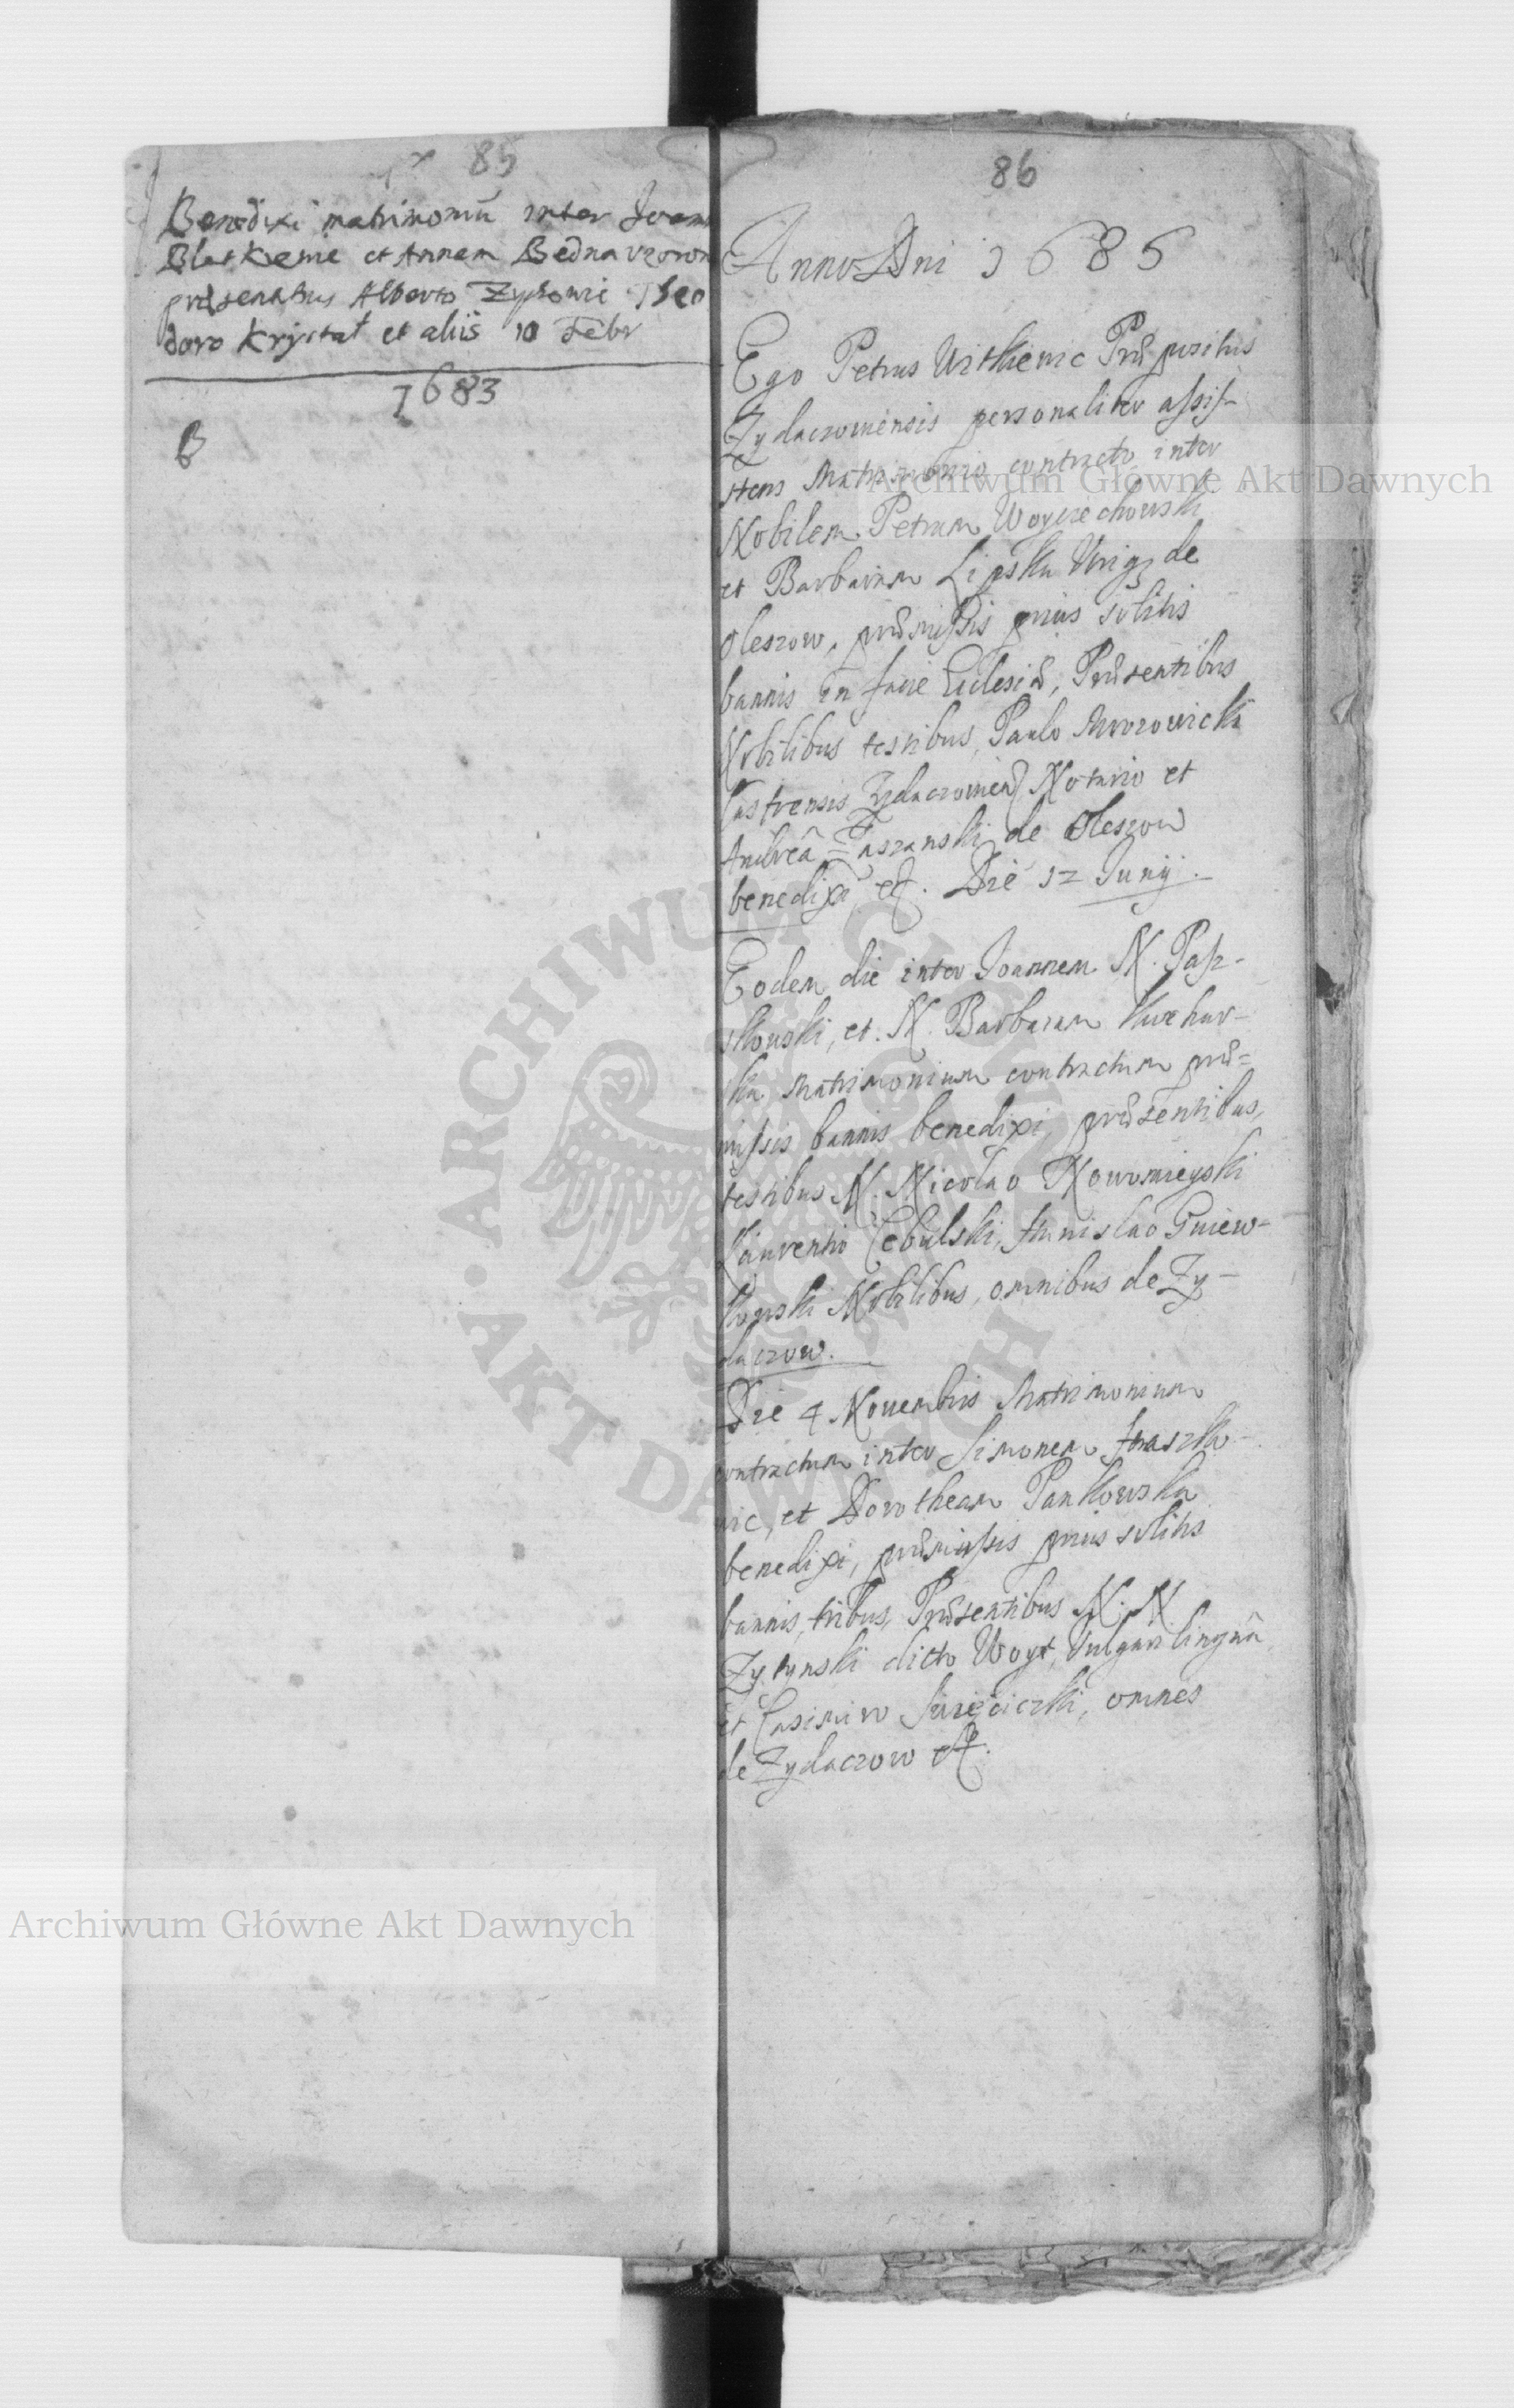 85
Benedixi matrimoniū inter Joann
Blaskewic et Annam Bednarzown
præsentibus Alberto Zyskowic Theo
doro Krystał et aliis 10 Febr
1683
B
86
Anno Dni 1685
Ego Petrus Witkiewic Præpositus
Zydaczoviensis personaliter assis-
stens Matrimonio contracto inter
Nobilem Petrum Woyciechowski
et Barbaram Lipska Virgį de
Oleszow, præmissis prius solitis
bannis in facie Ecclesiæ, Præsentibus
Nobilibus testibus, Paulo Mrozowicki
Castrensis Zydaczovien Notario et
Andreâ Taszanski de Oleszow
benedixi etc. Die 12 Junij.
Eodem die inter Joannem N. Pasz-
kowski, et N. Barbaram
ka Matrimonium contractum præ=
missis bannis benedixi, præsentibus,
testibus N. Nicolao Nowomieyski
Laurentio Cebulski, Stanislao Gniew-
kowski Nobilibus, omnibus de Zy-
daczow.
Die 4 Novembris Matrimonium
contractum inter Simonem Staszke-
wic, et Dorotheam Pankowska
benedixi, præmissis prius solitis
bannis, tribus, Præsentibus N. N.
Zytynski dicto Woyt, Vulgari linguâ
et Casimiro omnes
de Zydaczow etc.
Archiwum Główne Akt Dawnych
Archiwum Główne Akt Dawnych
ARCHIWUM GŁÓWNE AKT DAWNYCH